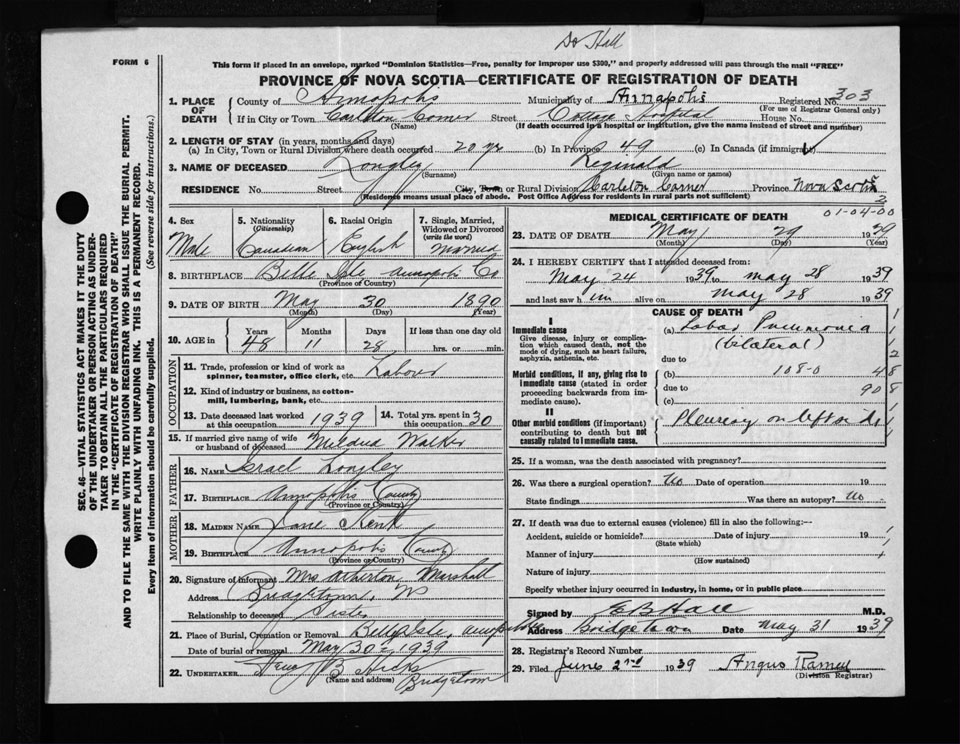 Dr Hall
FORM 6
This form if placed in an envelope, marked "Dominion Statistics—Free, penalty for improper use $300," and properly addressed will pass through the mail "FREE"
PROVINCE OF NOVA SCOTIA—CERTIFICATE OF REGISTRATION OF DEATH
1. PLACE OF DEATH County of Annapolis Municipality of Annapolis Registered No. 303
(For use of Registrar General only)
If in City or Town Carleton Corner Street Cottage Hospital House No.
(Name) (If death occurred in a hospital or institution, give the name instead of street and number)
2. LENGTH OF STAY (in years, months and days)
(a) In City, Town or Rural Division where death occurred 20 yr (b) In Province 49 (c) In Canada (if immigrant)
3. NAME OF DECEASED Longley Reginald
(Surname) (Given name or names)
RESIDENCE No. Street City, Town or Rural Division Carleton Corner Province Nova Scotia
(Residence means usual place of abode. Post Office Address for residents in rural parts not sufficient)
SEC. 46—VITAL STATISTICS ACT MAKES IT THE DUTY
OF THE UNDERTAKER OR PERSON ACTING AS UNDER-
TAKER TO OBTAIN ALL THE PARTICULARS REQUIRED
IN THE "CERTIFICATE OF REGISTRATION OF DEATH"
AND TO FILE THE SAME WITH THE DIVISION REGISTRAR WHO SHALL ISSUE THE BURIAL PERMIT.
WRITE PLAINLY WITH UNFADING INK. THIS IS A PERMANENT RECORD.
Every item of information should be carefully supplied. (See reverse side for instructions.)
4. Sex 5. Nationality (Citizenship) 6. Racial Origin 7. Single, Married, Widowed or Divorced (write the word)
Male Canadian English Married
8. BIRTHPLACE Belle Isle Annapolis Co
(Province or Country)
9. DATE OF BIRTH May 30 1890
(Month) (Day) (Year)
10. AGE in Years Months Days If less than one day old
48 11 28 hrs. or min.
OCCUPATION
11. Trade, profession or kind of work as spinner, teamster, office clerk, etc. Labour
12. Kind of industry or business, as cotton-mill, lumbering, bank, etc.
13. Date deceased last worked at this occupation 1939 14. Total yrs. spent in this occupation 30
15. If married give name of wife or husband of deceased Walker
FATHER
16. NAME Israel Longley
17. BIRTHPLACE Annapolis County
(Province or Country)
MOTHER
18. MAIDEN NAME Jane
19. BIRTHPLACE Annapolis County
(Province or Country)
20. Signature of informant Mrs Atherton Marshall
Address Bridgetown, NS
Relationship to deceased Sister
21. Place of Burial, Cremation or Removal Belleisle, Annapolis
Date of burial or removal May 30 = 1939
22. UNDERTAKER B Hicks Bridgetown
(Name and address)
2
01-04-00
MEDICAL CERTIFICATE OF DEATH
23. DATE OF DEATH May 29 1939
(Month) (Day) (Year)
24. I HEREBY CERTIFY that I attended deceased from:
May 24 1939 to May 28 1939
and last saw him alive on May 28 1939
CAUSE OF DEATH
I
Immediate cause (a) Lobar Pneumonia
Give disease, injury or complication which caused death, not the mode of dying, such as heart failure, asphyxia, asthenia, etc.
(bilateral)
due to
Morbid conditions, if any, giving rise to immediate cause (stated in order proceeding backwards from immediate cause).
(b) 108-0 48
due to 908
(c)
II
Other morbid conditions (if important) contributing to death but not causally related to immediate cause.
Pleurisy on left side
25. If a woman, was the death associated with pregnancy?
26. Was there a surgical operation? No Date of operation 19
State findings Was there an autopsy? No
27. If death was due to external causes (violence) fill in also the following:—
Accident, suicide or homicide? Date of injury 19
(State which)
Manner of injury
(How sustained)
Nature of injury
Specify whether injury occurred in industry, in home, or in public place
Signed by E B Hall M.D.
Address Bridgetown Date May 31 1939
28. Registrar's Record Number
29. Filed June 2nd 1939 Angus
(Division Registrar)